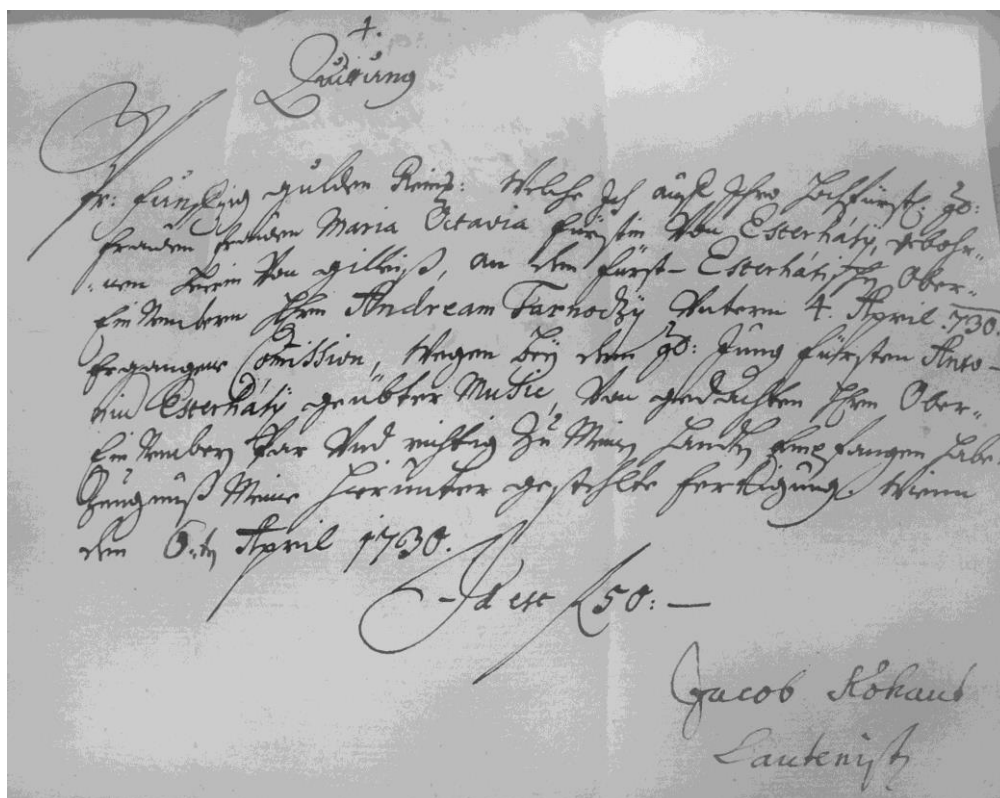 1.
Quittung
Pr: funfzig gulden Reins: Welche Ich auß Ihro Hochfürstl: gd:
Frauen Frauen Maria Octavia Fürstin Von Esterházÿ, gebohr=
=nen Von gilleiß, an dem Fürst=Esterházischen Ober=
Einnembern Hrn Andream Tarnodzÿ Unterm 4. April 730
Ergangene Comission, Wegen beÿ dem gd: Jung Fürsten Anto=
nio Esterházÿ geübter Music, Von gedachten Hrn Ober=
Einnembern Par Und richtig Zu Meinen Handen Empfangen habe.
Zeügnuß Meine hierunter gestehlte fertigung. Wienn
den 6:ten April 1730.
Id est f 50:—
Jacob Kohaut
Lautenist